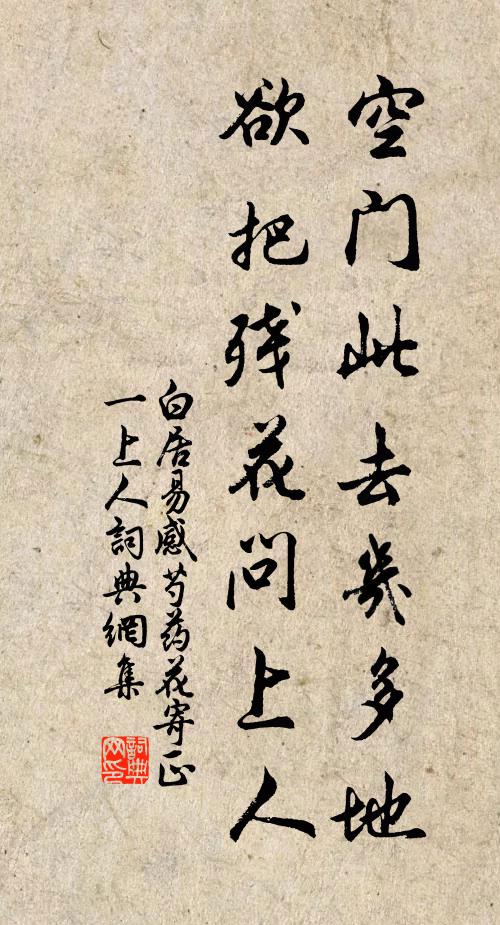 空门此去幾多地
欲把残花问上人
白居易感芍药花寄正
一上人詞典網集
詞典
网印